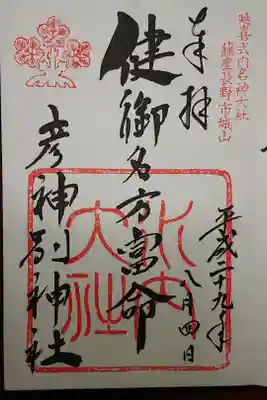 延喜式内名神大社
鎮座長野市城山
奉拝
健御名方富命
彦神別神社
平成二十九年
八月四日
水内大社